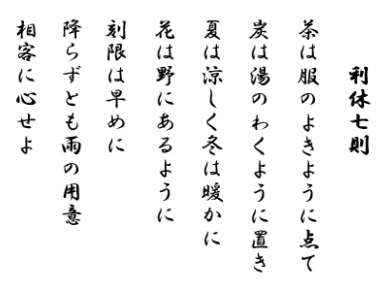 利休七則
茶は服のよきように点て
炭は湯のわくように置き
夏は涼しく冬は暖かに
花は野にあるように
刻限は早めに
降らずとも雨の用意
相客に心せよ